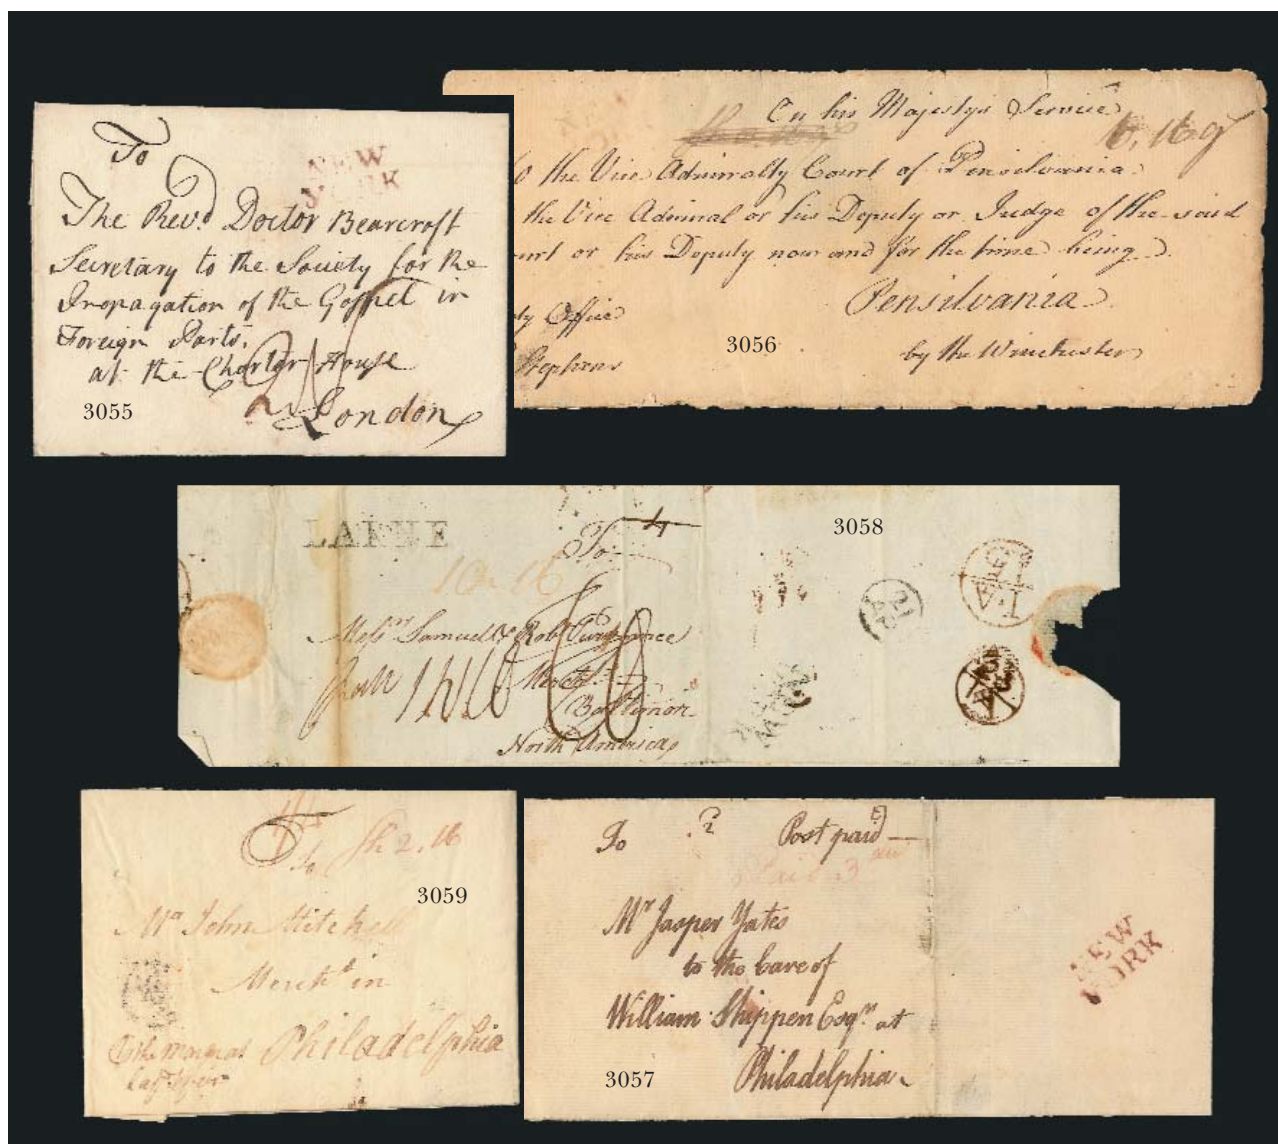 To
NEW
YORK
The Revd. Doctor Bearcroft
Secretary to the Society for the
Propagation of the Gospel in
Foreign Parts.
at the Charter House
London
3055
On his Majestys Service
the Vice Admiralty Court of Pensilvania
the Vice Admiral or his Deputy or Judge of the said
urt or his Deputy now and for the time being
Pensilvania
ty Office
by the Winchester
Stephens
3056
LARNE
To
4
3058
Messrs Samuel & Robt Purviance
Mercts
Baltimore
North America
To
Sh 2.16
3059
Mr John Mitchell
Mercht in
Philadelphia
To
2
Post paid
Paid 3
Mr Jasper Yates
to the Care of
William Shippen Esqr at
Philadelphia
3057
NEW
YORK